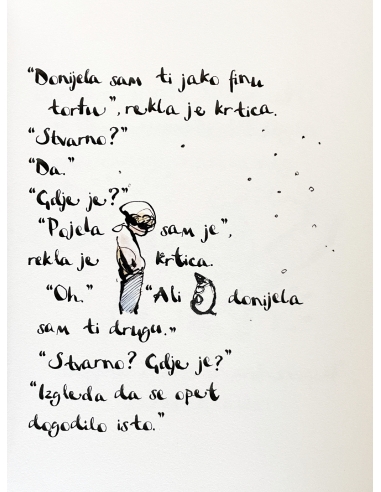 "Donijela sam ti jako finu
tortu", rekla je krtica.
"Stvarno?"
"Da."
"Gdje je?"
"Pojela sam je",
rekla je krtica.
"Oh." "Ali donijela
sam ti drugu."
"Stvarno? Gdje je?"
"Izgleda da se opet
dogodilo isto."